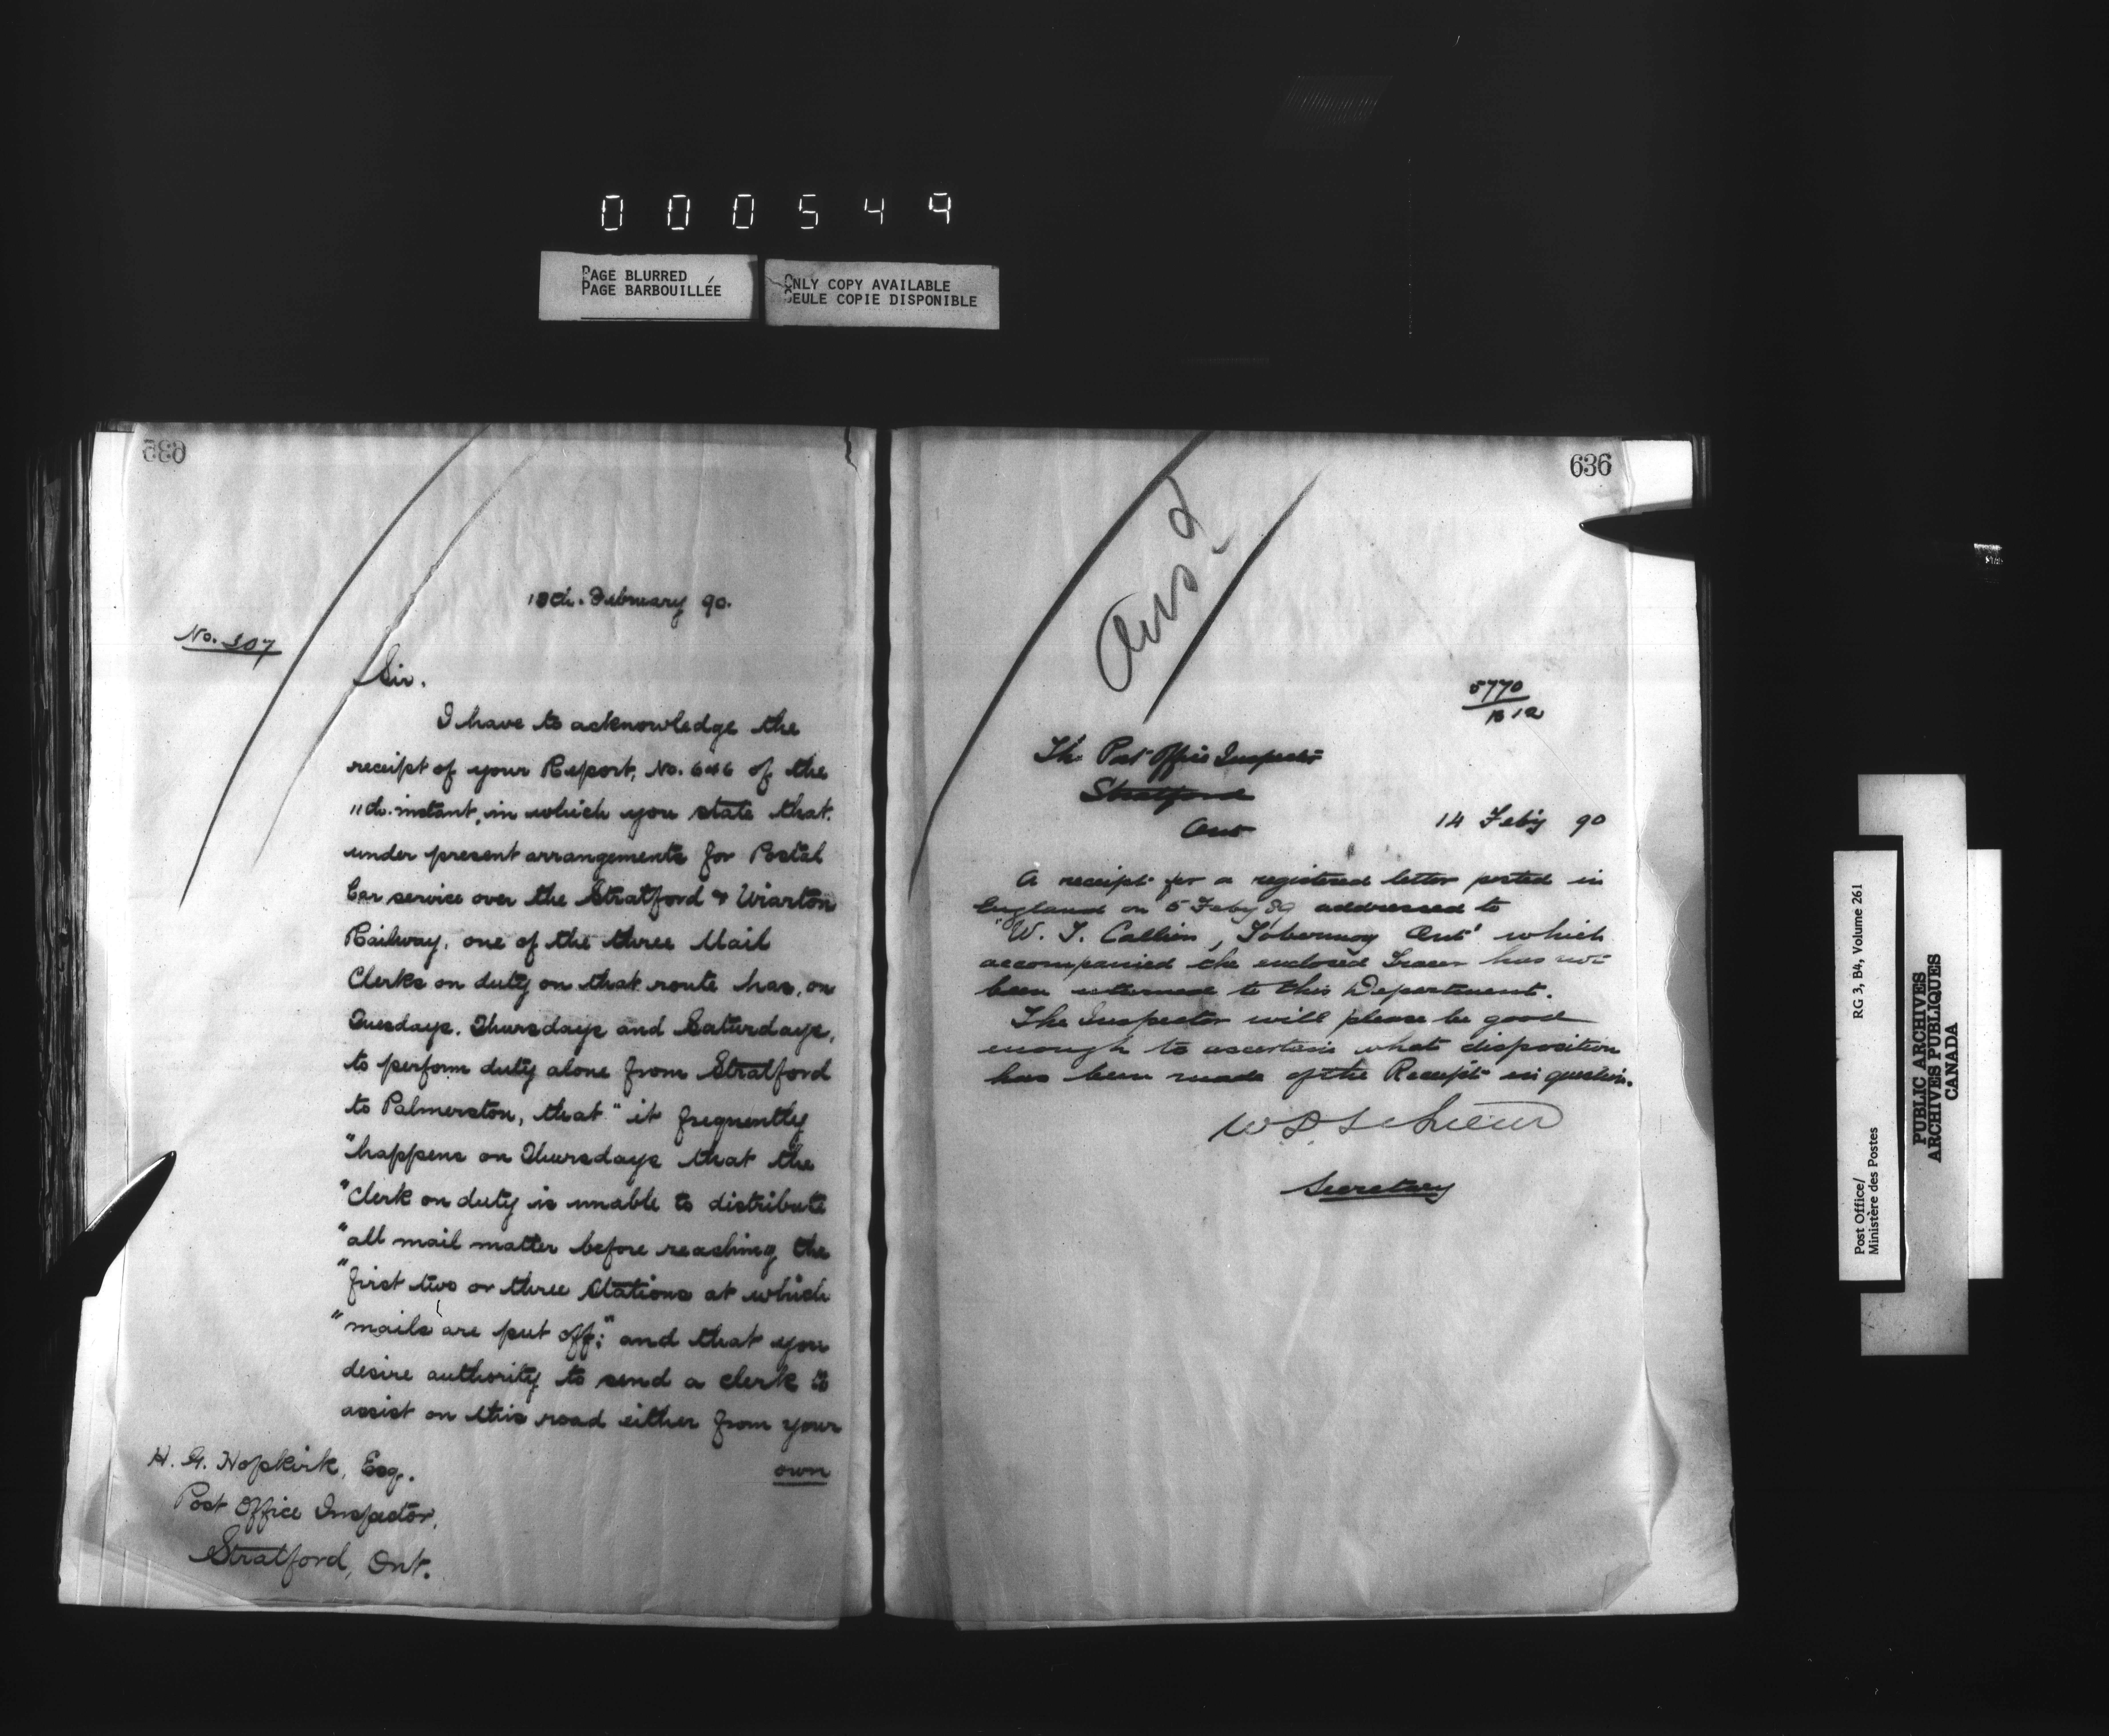 000549
PAGE BLURRED
PAGE BARBOUILLÉE
ONLY COPY AVAILABLE
SEULE COPIE DISPONIBLE
635
February 90.
No. 307
Sir.
I have to acknowledge the
receipt of your Report, No. 646 of the
11th. instant, in which you state that
under present arrangements for Postal
Car service over the Stratford & Wiarton
Railway, one of the three Mail
Clerks on duty on that route has, on
Tuesdays, Thursdays and Saturdays,
to perform duty alone from Stratford
to Palmerston, that "it frequently
"happens on Thursdays that the
"Clerk on duty is unable to distribute
"all mail matter before reaching the
"first two or three Stations at which
"mails are put off;" and that you
desire authority to send a clerk to
assist on this road either from your
own
H. G. Hopkirk, Esq.
Post Office Inspector,
Stratford, Ont.
636
Ansd
5770
B 12
The Post Office Inspector
Stratford
Ont
14 Feby 90
A receipt for a registered letter posted in
England on 5 Feby 89 addressed to
"W. J. Callien, Tobermory Ont" which
accompanied the enclosed Tracer has not
been returned to this Department.
The Inspector will please be good
enough to ascertain what disposition
has been made of the Receipt in question.
Secretary
Post Office/
Ministère des Postes
RG 3, B4, Volume 261
PUBLIC ARCHIVES
ARCHIVES PUBLIQUES
CANADA